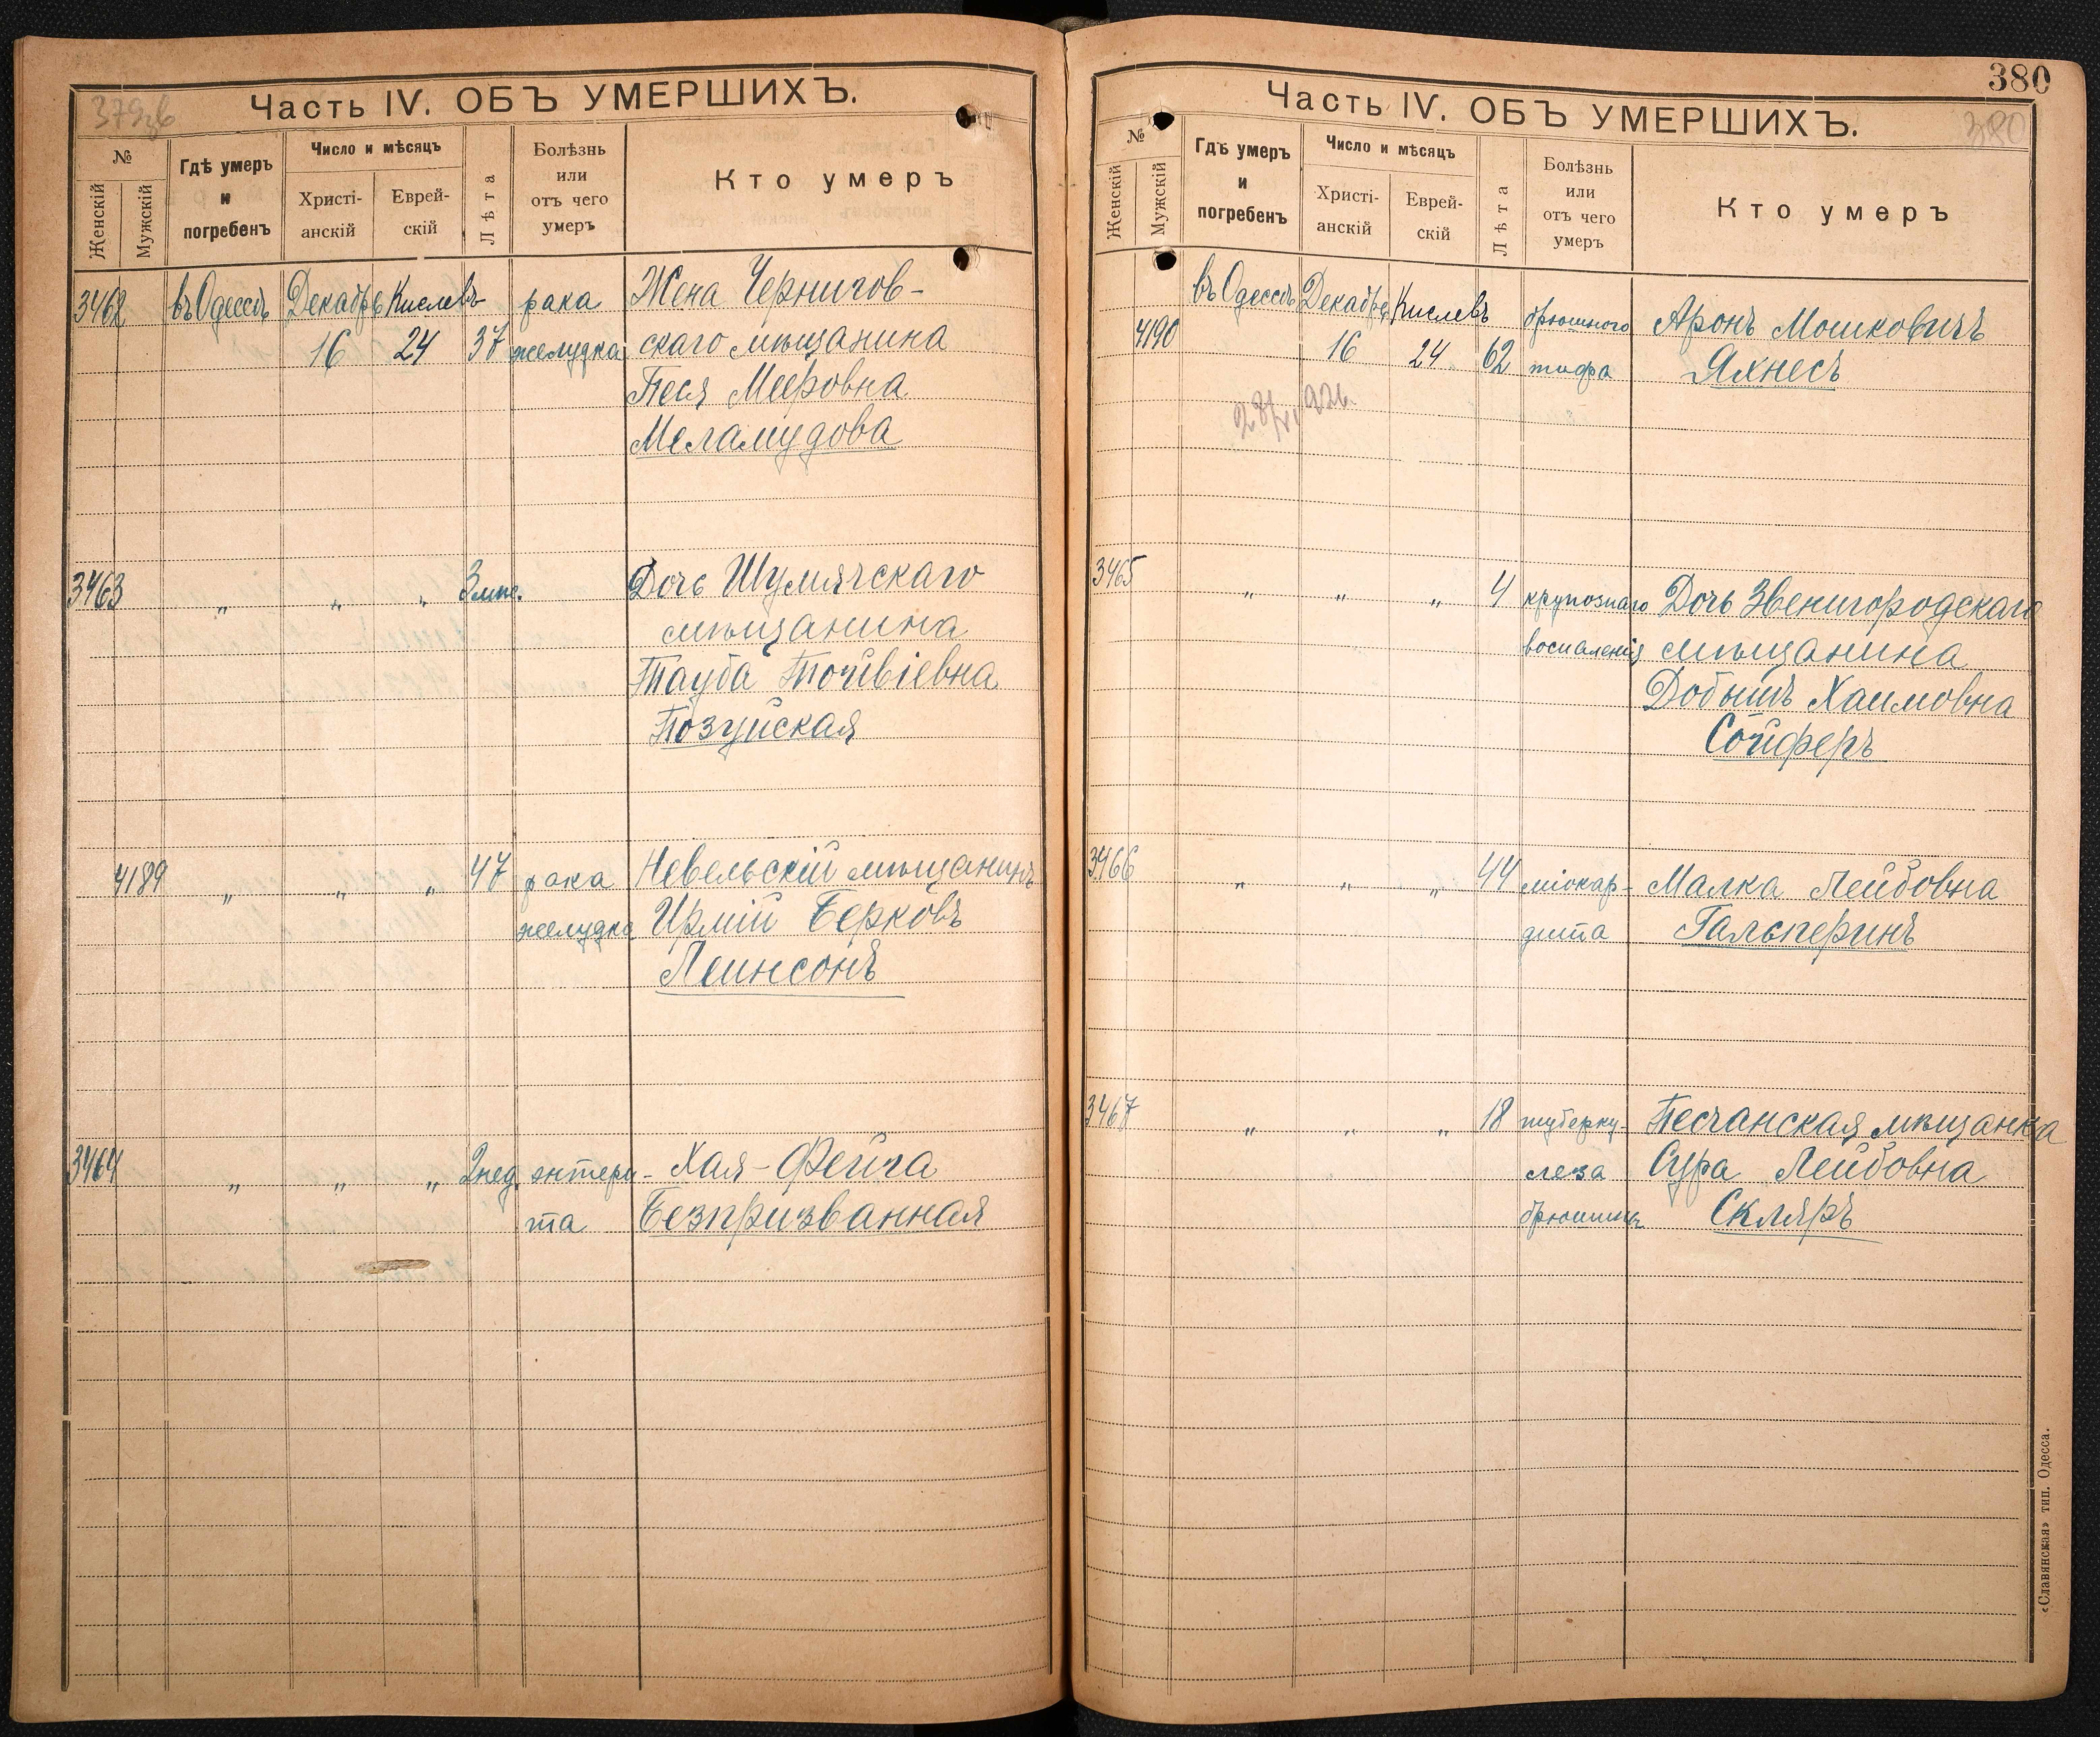 379зв
Часть IV. ОБЪ УМЕРШИХЪ.
№
Женскій
Мужскій
Гдѣ умеръ
и
погребенъ
Число и мѣсяцъ
Христі-
анскій
Еврей-
скій
Лѣта
Болѣзнь
или
отъ чего
умеръ
Кто умеръ
3462 въ Одессѣ Декабрь Кислевъ рака Жена Чернигов-
16 24 37 желудка скаго мѣщанина
Песя Меєровна
Меламудова
3463 „ „ „ 3 мѣс. Дочь Шумячскаго
мѣщанина
Тауба
Позуйская
4189 „ „ „ 47 рака Невельскій мѣщанинъ
желудка Ирмій Берковъ
Леинсонъ
3464 „ „ „ 2 нед. энтери- Хая-Фейга
та Безпризванная
380
Часть IV. ОБЪ УМЕРШИХЪ.
380
№
Женскій
Мужскій
Гдѣ умеръ
и
погребенъ
Число и мѣсяцъ
Христі-
анскій
Еврей-
скій
Лѣта
Болѣзнь
или
отъ чего
умеръ
Кто умеръ
въ Одессѣ Декабрь Кислевъ брюшного Аронъ Мошковичъ
4190 16 24 62 тифа Яхнесъ
3465 „ „ „ 4 крупознаго Дочь Звенигородскаго
воспаленія мѣщанина
Добышъ Хаимовна
Сойферъ
3466 „ „ „ 44 міокар- Малка Лейбовна
дита Гальперинъ
3467 „ „ „ 18 туберку- Песчанская мѣщанка
леза Сура Лейбовна
брюшины Скляръ
«Славянская» тип. Одесса.